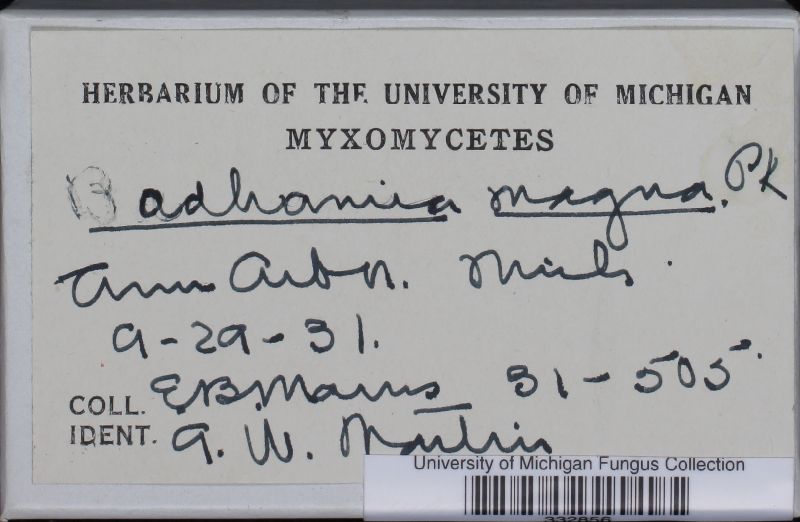 HERBARIUM OF THE UNIVERSITY OF MICHIGAN
MYXOMYCETES
Badhamia magna. Pk
Ann Arbor. Mich.
9-29-31.
COLL. E.B. Mains 31-505.
IDENT. G. W. Martin
University of Michigan Fungus Collection
332856